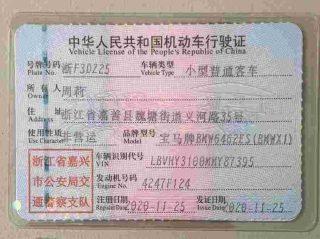 中华人民共和国机动车行驶证
Vehicle License of the People's Republic of China
号牌号码 浙F30Z25 车辆类型 小型普通客车
Plate No. Vehicle Type
所有人 周莉
Owner
住址 浙江省嘉善县魏塘街道义河路35号
Address
使用性质 非营运 品牌型号 宝马牌BMW6462ES(BMWX1)
Use Character Model
浙江省嘉兴
市公安局交
通警察支队
车辆识别代号 LBVHY3100MMY87395
VIN
发动机号码 4247F124
Engine No.
注册日期 2020-11-25 发证日期 2020-11-25
Register Date Issue Date